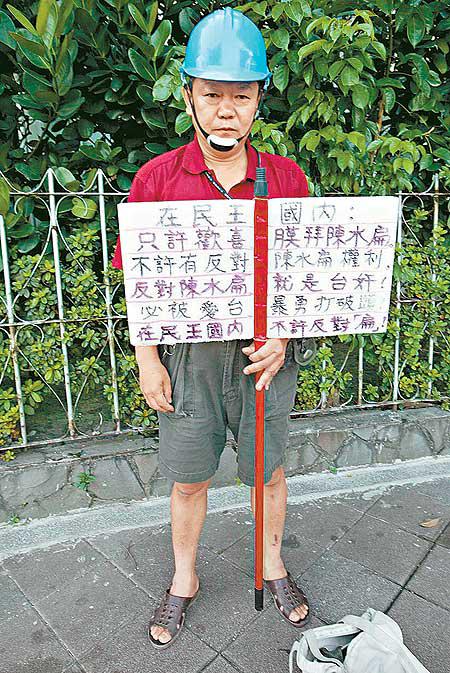 在民主國內：
只許歡喜膜拜陳水扁
不許有反對陳水扁權利
反對陳水扁就是台奸！
必被愛台暴勇打破
在民主國內不許反對「扁」！